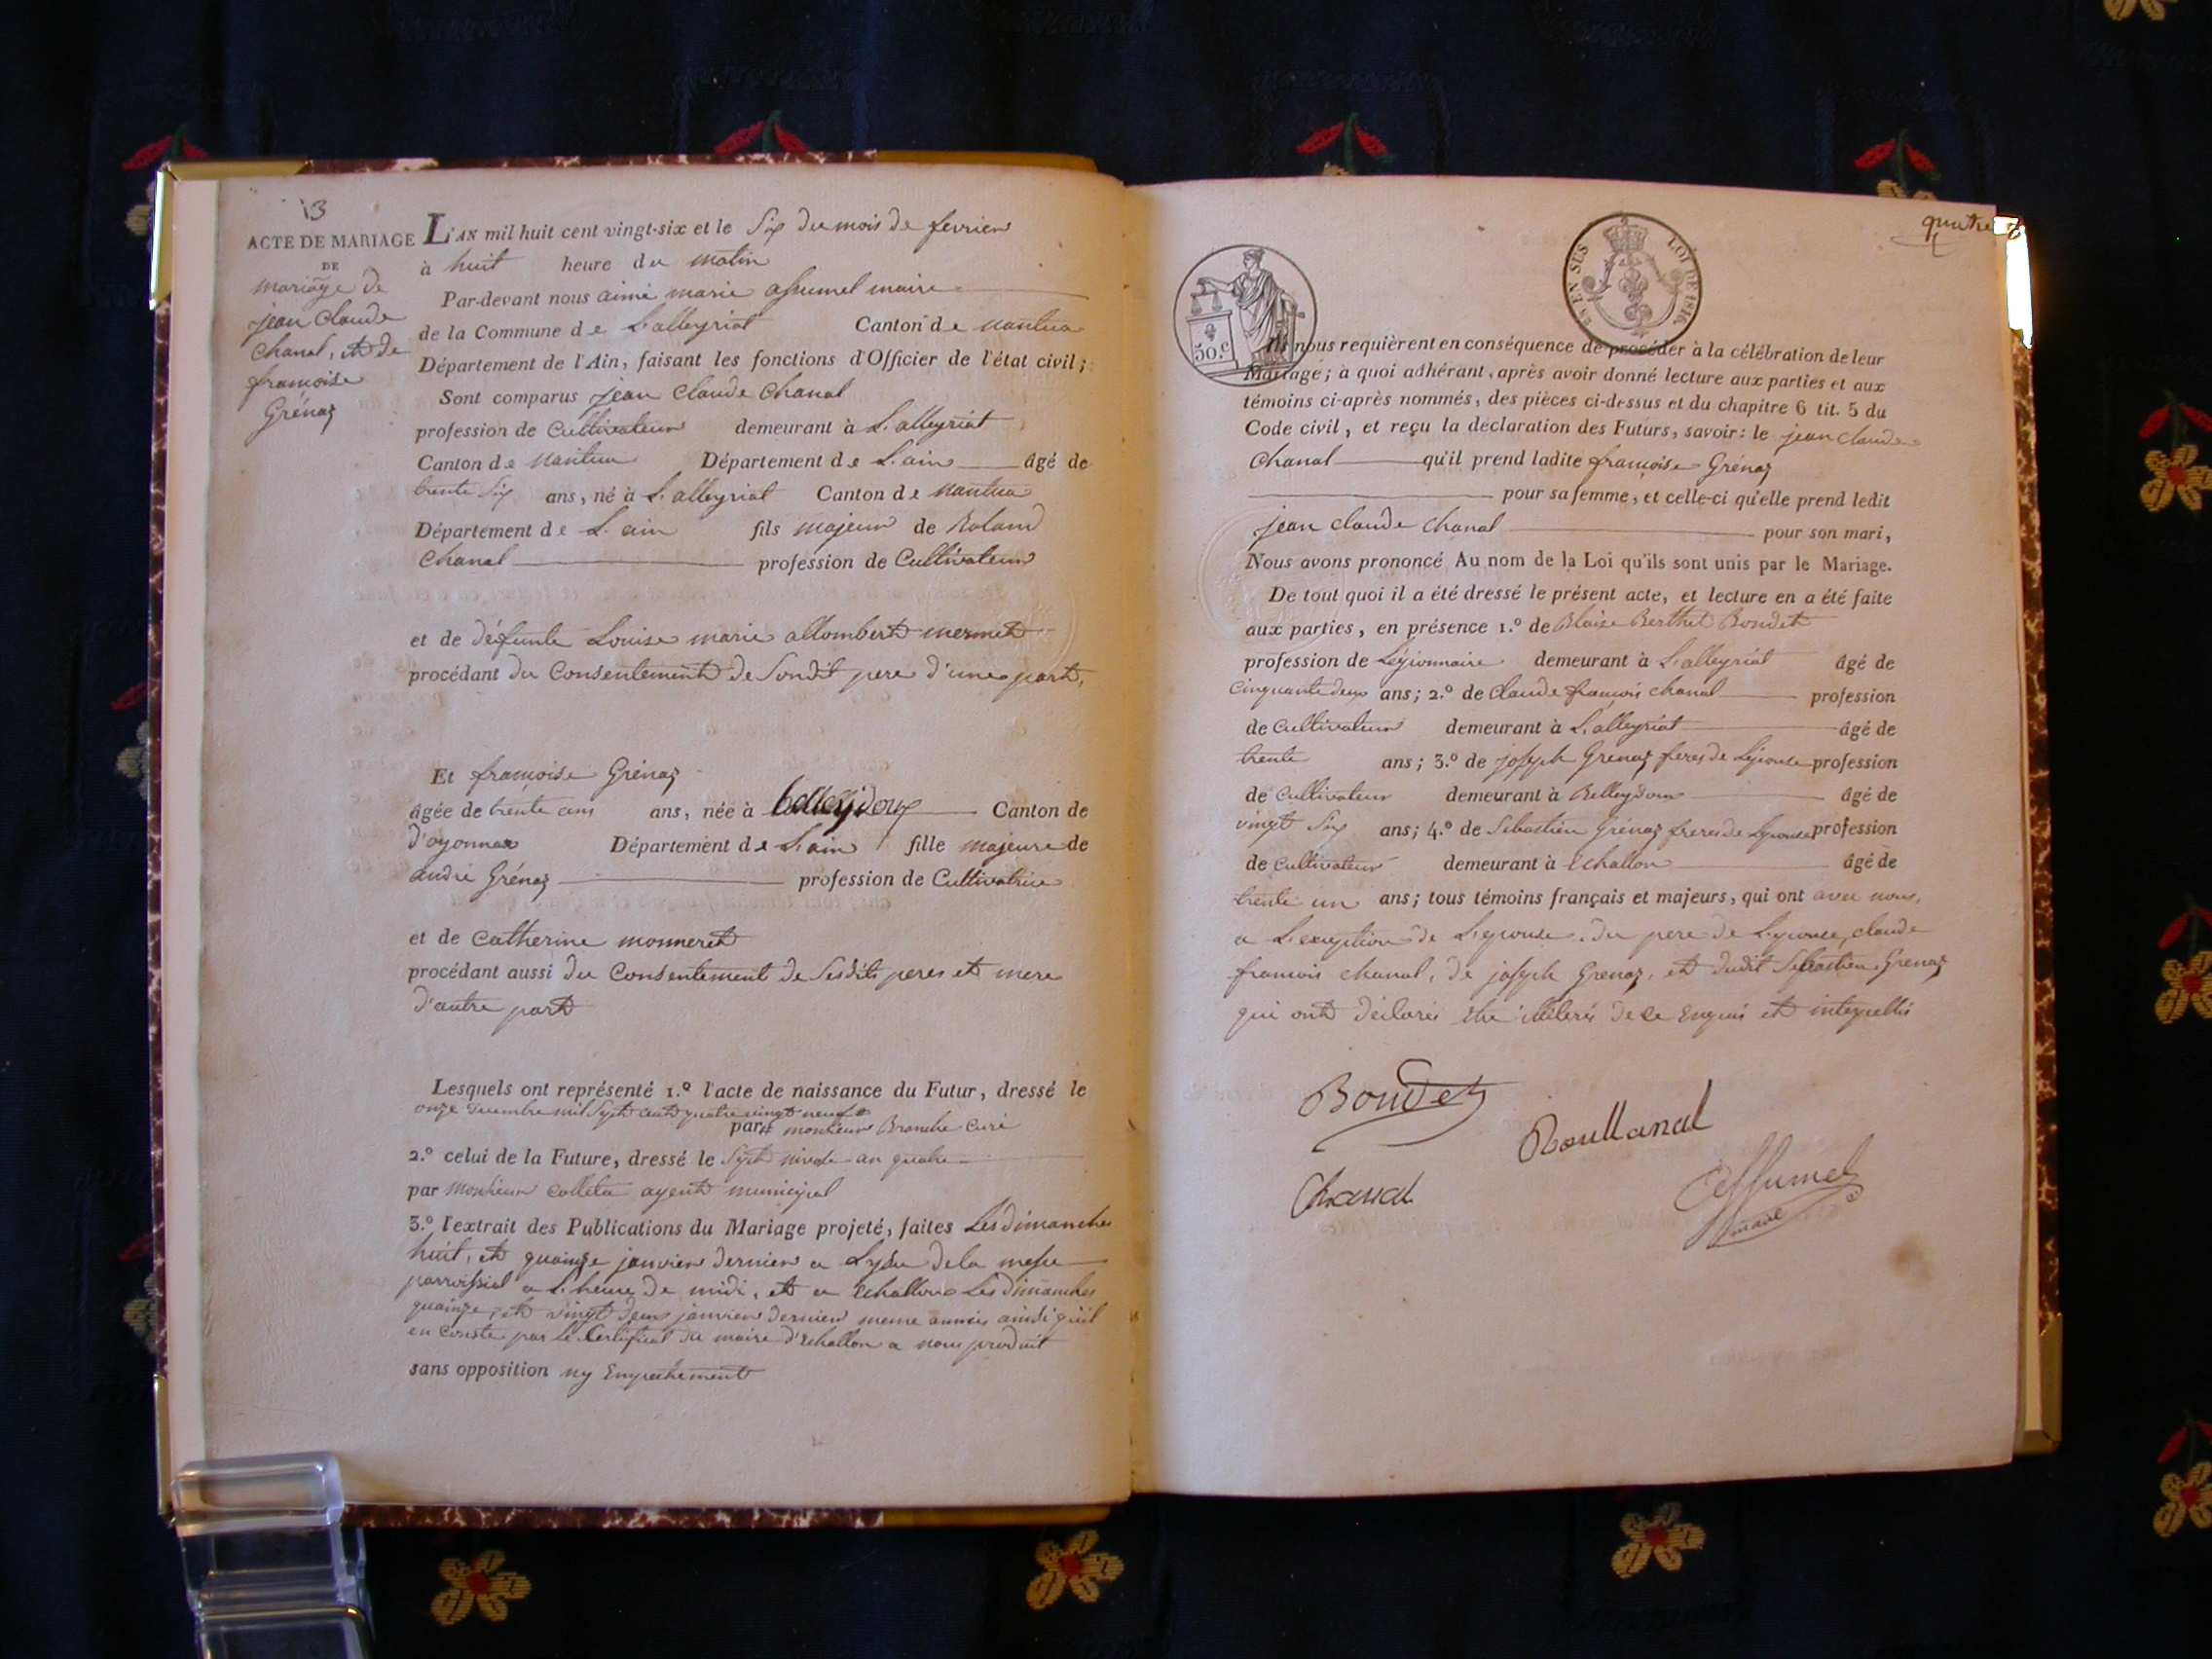 13
ACTE DE MARIAGE
DE
mariage de
jean Claude
Chanal, et de
françoise
Grénaz
L'AN mil huit cent vingt-six et le Six du mois de fevrier
à huit heure du matin
Par-devant nous aimé marie assumel maire
de la Commune de L'alleyriat Canton de nantua
Département de l'Ain, faisant les fonctions d'Officier de l'état civil;
Sont comparus jean Claude Chanal
profession de Cultivateur demeurant à L'alleyriat
Canton de nantua Département de L'ain âgé de
trente Six ans, né à L'alleyriat Canton de nantua
Département de L'ain fils majeur de Roland
Chanal profession de Cultivateur
et de défunte Louise marie allombert mermet
procédant du Consentement de Sondit pere d'une part,
Et françoise Grénaz
âgée de trente ans ans, née à belleydoux Canton de
d'oyonnax Département de L'ain fille majeure de
andré Grénaz profession de Cultivatrice
et de Catherine monneret
procédant aussi du Consentement de Sesdits peres et mere
d'autre part
Lesquels ont représenté 1.º l'acte de naissance du Futur, dressé le
onze decembre mil Sept cent quatre vingt neuf
par monsieur Branche Curé
2.º celui de la Future, dressé le Sept nivose an quatre
par monsieur colleta agent municipal
3.º l'extrait des Publications du Mariage projeté, faites Les dimanches
huit, et quainze janvier dernier a Lyssu de la messe
parroissial a L'heure de midi, et a Echallon Les dimanches
quainze, et vingt deux janvier dernier meme année ainsi qu'il
en Conste par le Certificat du maire d'Echallon a nous produit
sans opposition ny Empechement
quatre
50.c
EN SUS LOI DE 1816.
Ils nous requièrent en conséquence de procéder à la célébration de leur
Mariage; à quoi adhérant, après avoir donné lecture aux parties et aux
témoins ci-après nommés, des pièces ci-dessus et du chapitre 6 tit. 5 du
Code civil, et reçu la declaration des Futurs, savoir: le jean claude
Chanal qu'il prend ladite françoise Grénaz
pour sa femme, et celle-ci qu'elle prend ledit
jean claude Chanal pour son mari,
Nous avons prononcé Au nom de la Loi qu'ils sont unis par le Mariage.
De tout quoi il a été dressé le présent acte, et lecture en a été faite
aux parties, en présence 1.º de Blaise Berthet Bondet
profession de Légionnaire demeurant à L'alleyriat âgé de
Cinquante deux ans; 2.º de Claude françois chanal profession
de Cultivateur demeurant à L'alleyriat âgé de
trente ans; 3.º de joseph Grenaz frere de L'épouse profession
de Cultivateur demeurant à Belleydoux âgé de
vingt Six ans; 4.º de Sebastien Grénaz frere de L'epouse profession
de Cultivateur demeurant à Echallon âgé de
trente un ans; tous témoins français et majeurs, qui ont avec nous,
a L'exception de L'epouse, du pere de L'epouse, claude
françois chanal, de joseph Grenaz, et dudit Sebastien Grenaz
qui ont déclarés etre illiterés de ce Enquis et interpellés
Bondet
Roullanal
Chanal
assumel
maire